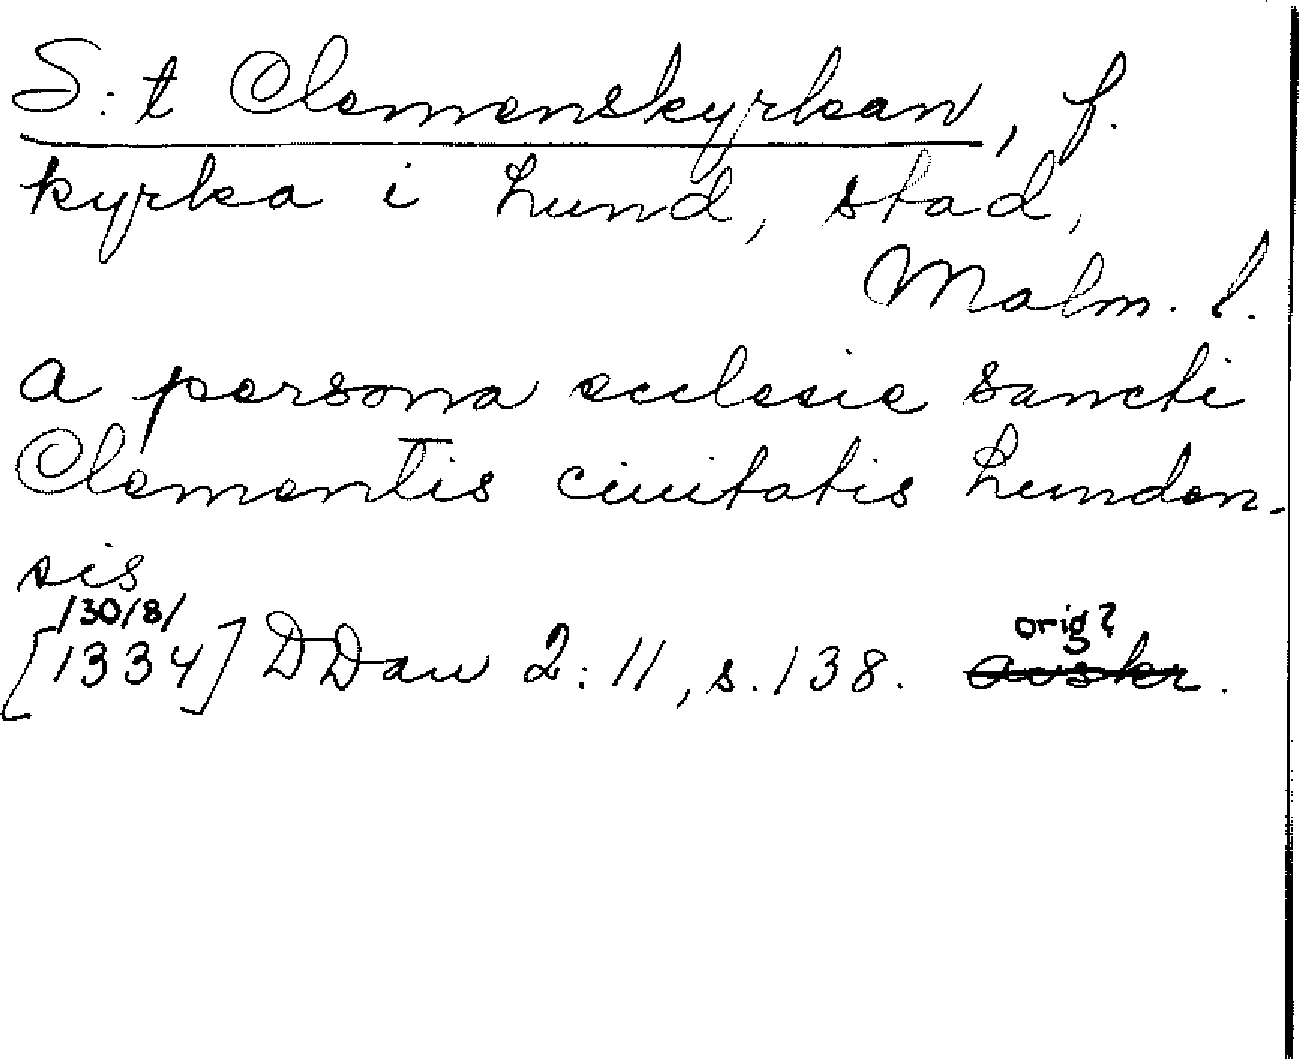 S:t Clemenskyrkan, f.
kyrka i Lund, stad,
Malm. l.
a persona ecclesie sancti
Clementis ciuitatis Lunden-
sis
/30/8/
[1334] DDan 2:11, s. 138. avskr.
orig?